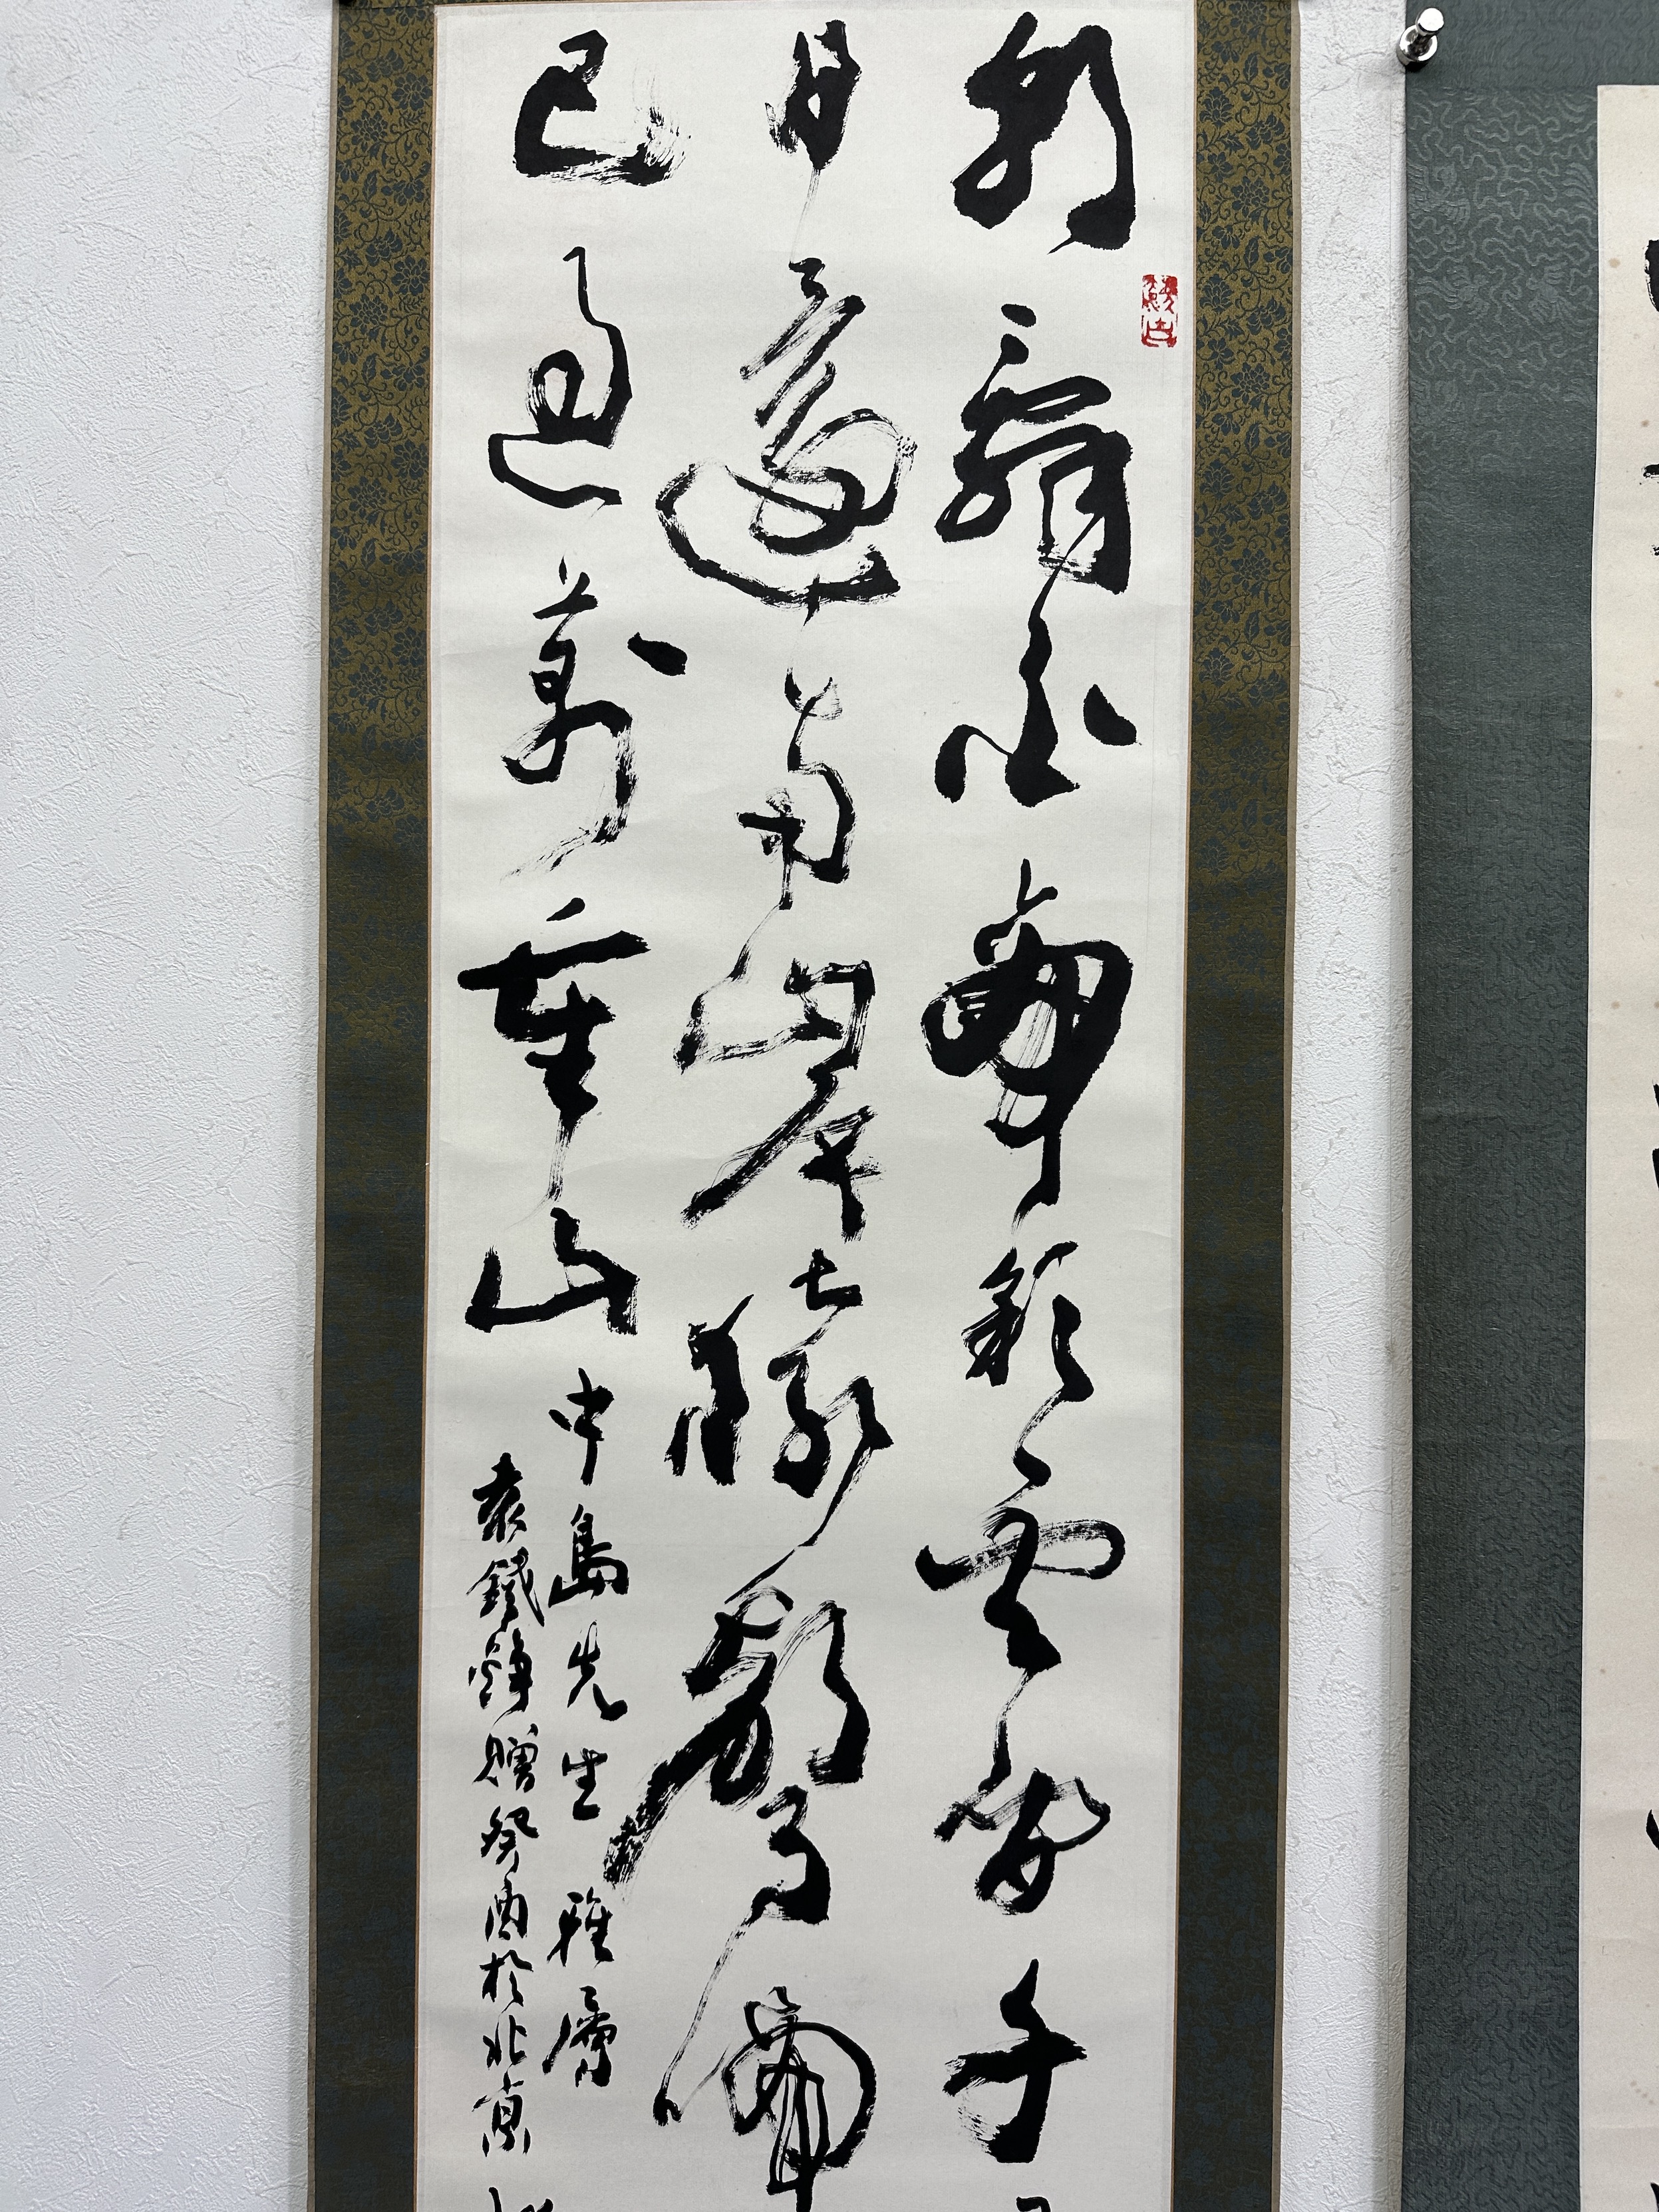 朝辭白帝彩雲間千
日還兩岸猿聲啼
已過萬重山
中島先生雅屬
袁鐵錚贈癸酉於北京